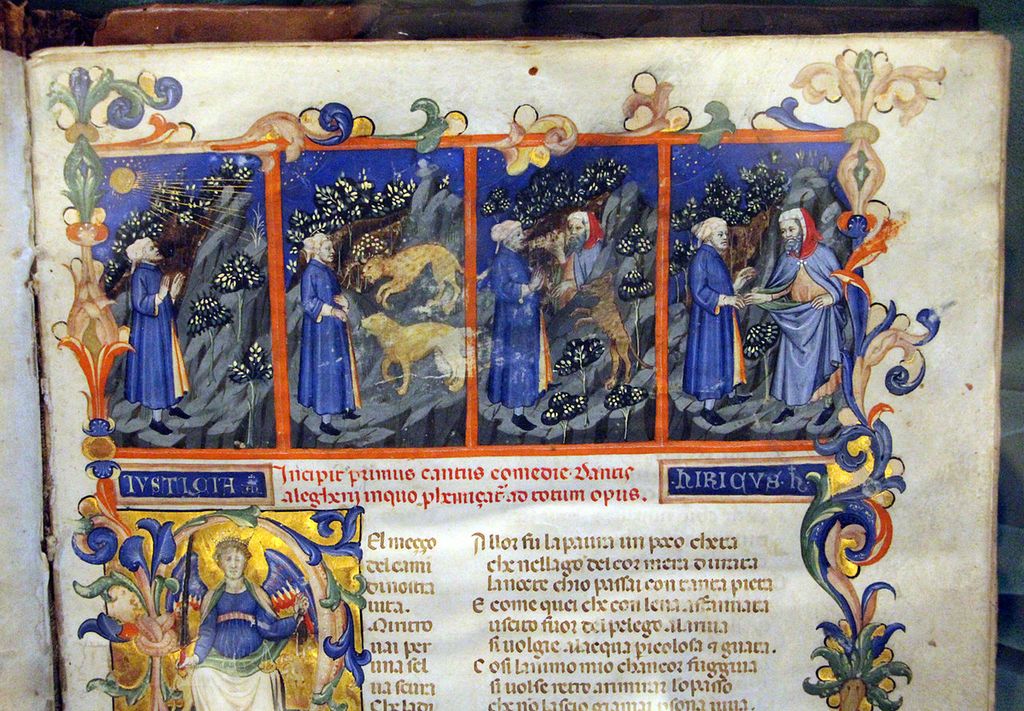 IVSTICIA
Incipit primus cantus comedie. Dantis
alegherij inquo ad totum opus.
HIRICVS
El meçço
del cami
di nostra
uita.
Miritro
uai per
una sel
ua scura
Che la di
Allor fu la paura un poco cheta
che nellago del cor mera durata
la nocte chio passai con tanta pieta
E come quei che con lena affannata
uscito fuor del pelego alariua
si uolgie alacqua picolosa & guata.
Cosi lanimo mio chancor fuggiua
si uolse retro arimirar lo passo
che no lascio giamai psona uiua.